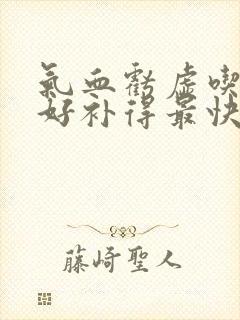 氣血虧虛喫
好补得最快
藤崎聖人